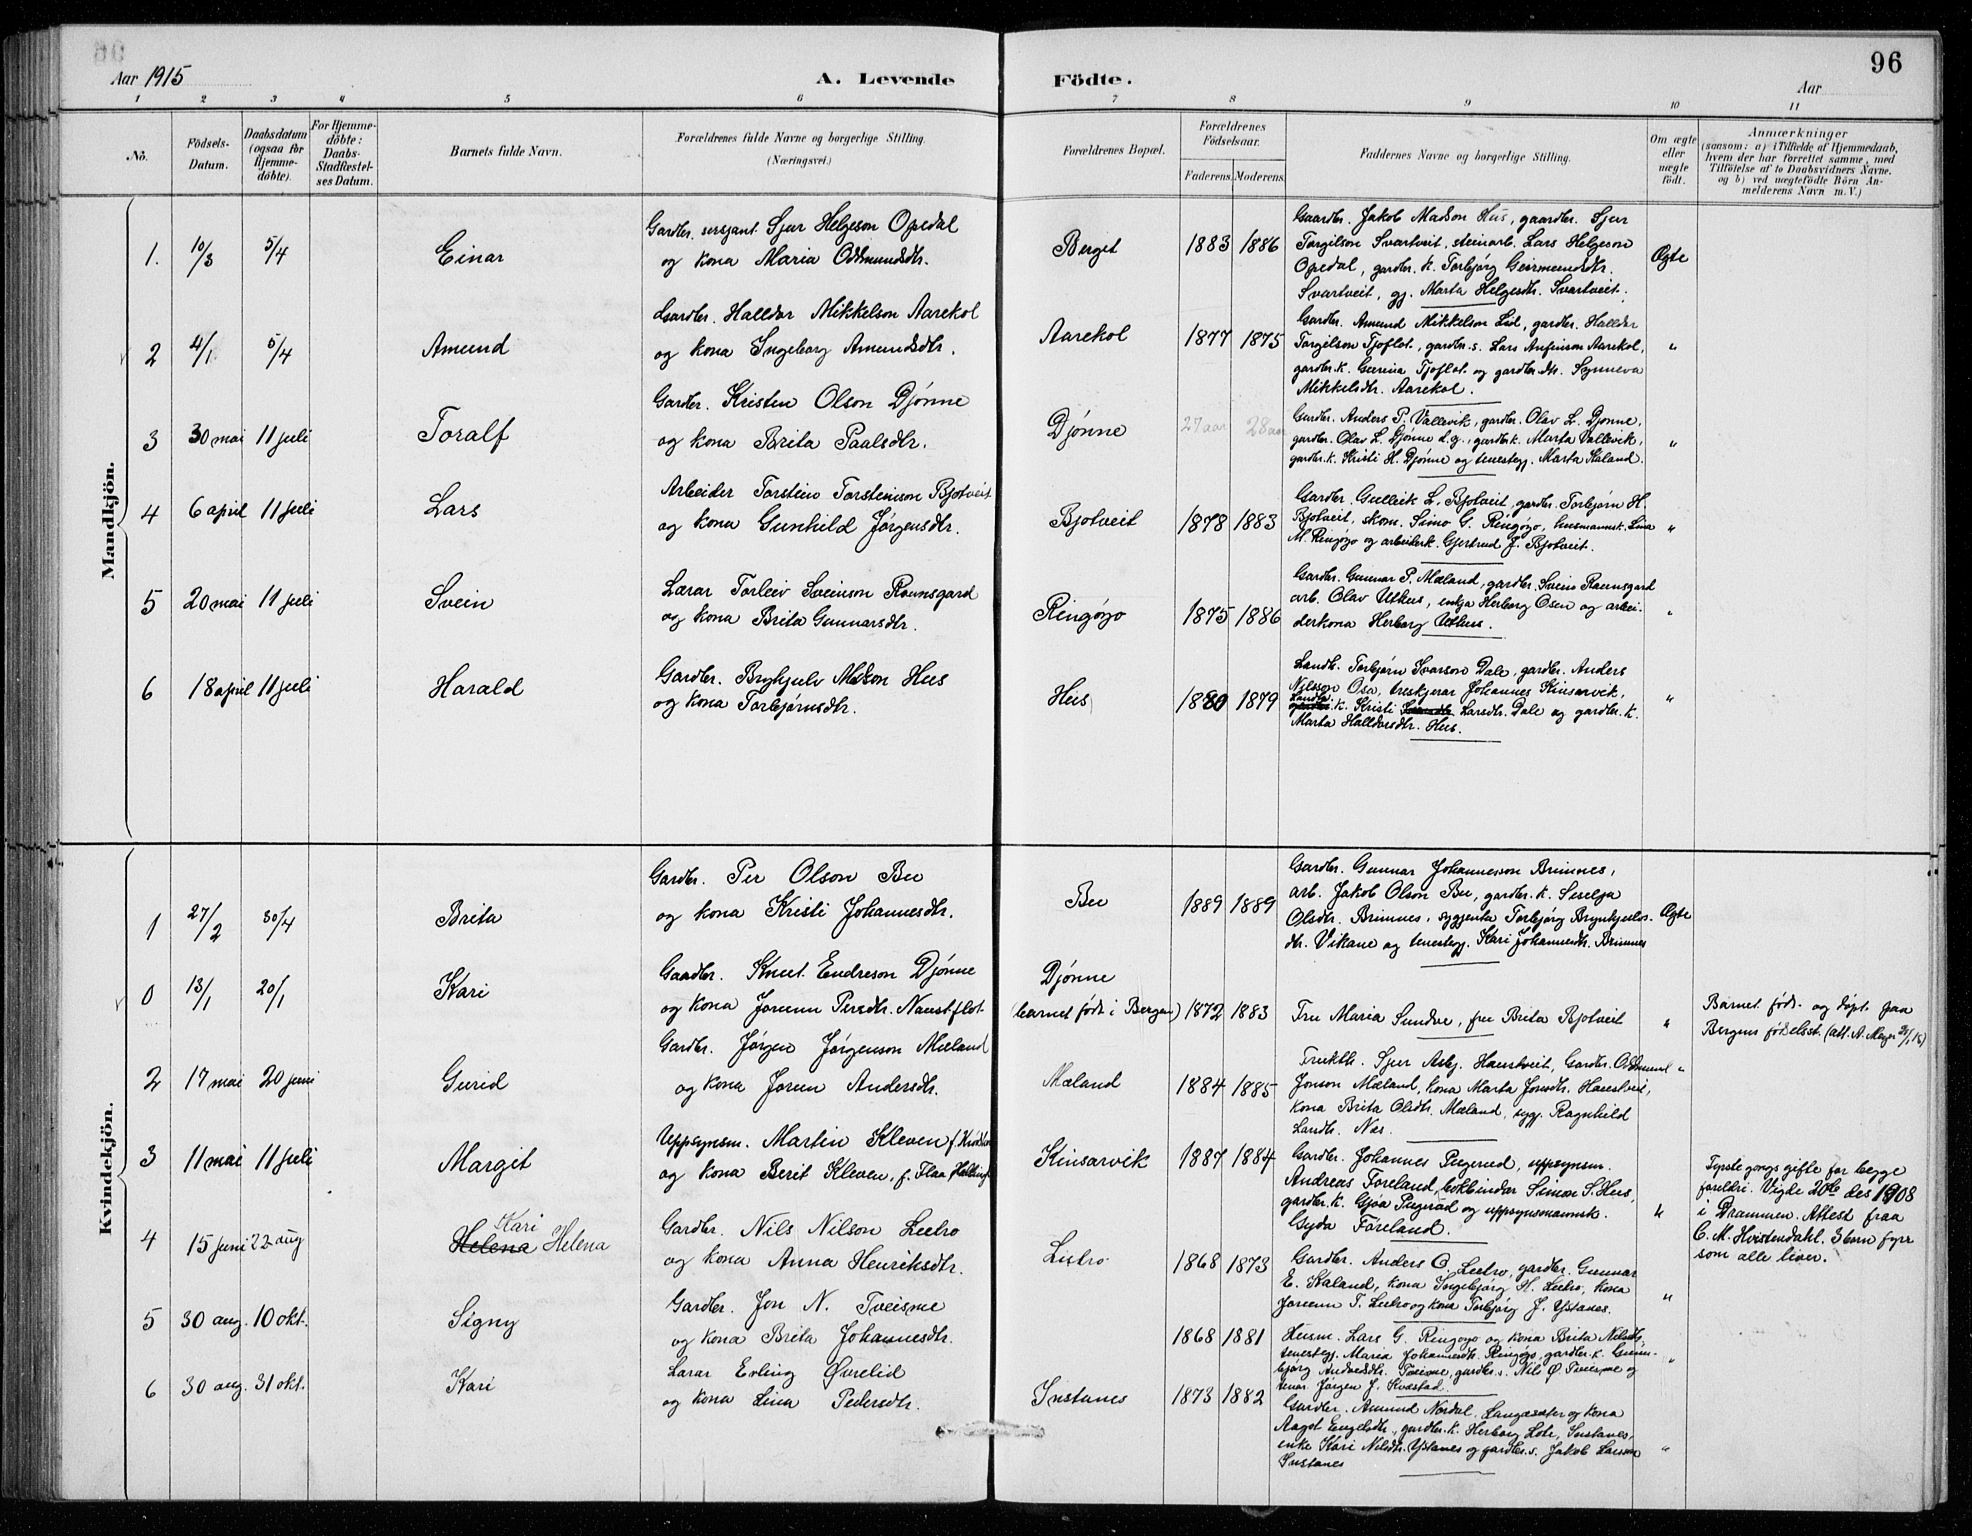 96
Aar 1915
A. Levende Födte.
Aar
1 2 3 4 5 6 7 8 9 10 11
No.
Födsels-Datum.
Daabsdatum (ogsaa for Hjemme-döbte).
For Hjemme-döbte: Daabs-Stadfæstel-ses Datum.
Barnets fulde Navn.
Forældrenes fulde Navne og borgerlige Stilling. (Næringsvei.)
Forældrenes Bopæl.
Forældrenes Födselsaar.
Faderens. Moderens.
Faddernes Navne og borgerlige Stilling.
Om ægte eller uægte født.
Anmærkninger
(saasom: a) i Tilfælde af Hjemmedaab,
hvem der har forrettet samme, med
Tilføielse af to Daabsvidners Navne.
og b) ved uægtefödte Börn An-
melderens Navn m. V.)
Mandkjön.
1. 10/3 5/4 Einar
Gardbr. sersjant Sjur Helgeson Opedal
og kona Maria Oddmundsdtr.
Berget 1883 1886
Gaardbr. Jakob Madson Hus, gaardbr. Sjur
Torgilson Svartveit, steinarb. Lars Helgeson
Opedal, gardbr. k. Torbjørg Geirmundsdtr.
Svartveit, gj. Marta Helgesdtr. Svartveit.
Ægte
2 4/1 5/4 Amund
Gardbr. Halldor Mikkelson Aarekol
og kona Ingeborg Amundsdtr.
Aarekol 1877 1875
Gardbr. Amund Mikkelson Lid, gardbr. Halldor
Torgilson Tjoflot, gardbr. s. Lars Anfinson Aarekol,
gardbr. k. Gurina Tjoflot og gardbr. dtr. Synneva
Mikkelsdtr. Aarekol.
"
3 30 mai 11 juli Toralf
Gardbr. Kristen Olson Djønne
og kona Brita Paalsdtr.
Djønne 27 aar 28 aar
Gardbr. Anders P. Vallevik, gardbr. Olav L. Djønne,
gardbr. Olav L. Djønne d.y., gardbr. k. Marta Vallevik,
gardbr. k. Kristi H. Djønne og tenestegj. Marta Staland.
"
4 6 april 11 juli Lars
Arbeider Torstein Torsteinson Bjotveit
og kona Gunhild Jørgensdtr.
Bjotveit 1878 1883
Gardbr. Gullvik L. Bjotveit, gardbr. Torbjørn H.
Bjotveit, skom. Simo G. Ringøyo, husmannsk. Lina
M. Ringøyo og arbeiderk. Gjertrud J. Bjotveit.
"
5 20 mai 11 juli Svein
Lærar Torleiv Sveinson Ravnsgard
og kona Brita Gunnarsdtr.
Ringøyo 1875 1886
Gardbr. Gunnar P. Mæland, gardbr. Svein Ravnsgard
arb. Olav Uthus, enkja Herborg Osen og arbei-
derkona Herborg Uthus.
"
6 18 april 11 juli Harald
Gardbr. Brynjulv Madson Hus
og kona Torbjørnsdtr.
Hus 1880 1879
Landh. Torbjørn Ivarson Dale, gardbr. Anders
Nilsson Osa, treskjerar Johannes Kinsarvik,
Landh. k. Kristi Larsdtr. Dale og gardbr. k.
Marta Halldorsdtr. Hus.
"
Kvindekjön.
1 27/2 30/4 Brita
Gardbr. Per Olson Bu
og kona Kristi Johannesdtr.
Bu 1889 1889
Gardbr. Gunnar Johannesson Brimnes,
arb. Jakob Olson Bu, gardbr. k.
Olsdtr. Brimnes, Torbjørg Brynhjulvs-
dtr. Vikane og tenestegj. Kari Johannesdtr. Brimnes
Ægte
0 13/1 20/1 Kari
Gaardbr. Knut Endreson Djønne
og kona Jorunn Persdtr. Naustflot
Djønne
(barnet født i Bergen) 1872 1883
Fru Maria Sundve, fru Brita Bjotveit
"
Barnet født og døpt paa
Bergens fødselsst. (att. A. Meyer 21/1 15)
2 17 mai 20 juni Gurid
Gardbr. Jørgen Jørgenson Mæland
og kona Jorun Andersdtr.
Mæland 1884 1885
Frukth. Sjur Asbj. Haustveit, Gardbr. Oddmund
Jonson Mæland, kona Marta Jonsdtr. Haustveit,
kona Brita Olsdtr. Mæland, ugj. Ragnhild
Landh. Næs.
"
3 11 mai 11 juli Margit
Uppsynsm. Martin Kleven f.
og kona Berit Kleven, f. Flaa Hallingd.
Kinsarvik 1887 1884
Gardbr. Johannes Pugerud, uppsynsm.
Andreas Foreland, bokbindar Simon S. Hus,
gardbr. k. Gjøa Pugerud og uppsynsmannsk.
Gyda Foreland.
"
Fyrste gongs gifte for begge
foreldri. Vigde 20de des 1908
i Drammen. Attest fraa
C. M. Hvistendahl. 3 born fyrr
som alle liver.
4 15 juni 22 aug Kari Helena Helena
Gardbr. Nils Nilson Lutro
og kona Anna Henriksdtr.
Lutro 1868 1873
Gardbr. Anders O. Lutro, gardbr. Gunnar
E. Staland, kona Ingebjørg H. Lutro, kona
Jorunn T. Lutro og kona Torbjørg J. Ystanes.
"
5 30 aug. 10 okt. Signy
Gardbr. Jon N. Tveisme
og kona Brita Johannesdtr.
1868 1881
Husm. Lars G. Ringøyo og kona Brita Nilsdtr.
tenestegj. Maria Johannesdtr. Ringøyo, gardbr. k. Guun-
bjørg Andersdtr. Tveisme, gardbr. s. Nils Ø. Tveisme og
tenar Jørgen J. Kvæstad.
"
6 30 aug. 31 okt. Kari
Lærar Erling Øvrelid
og kona Lina Pedersdtr.
Instanes 1873 1882
Gardbr. Amund Nordal Langesæter og kona
Aagot Engelsdtr., gardbr. k. Herborg Lote, Instanes,
enke Kari Nilsdtr. Ystanes og gardbr. s. Jakob Larsson
Instanes
"